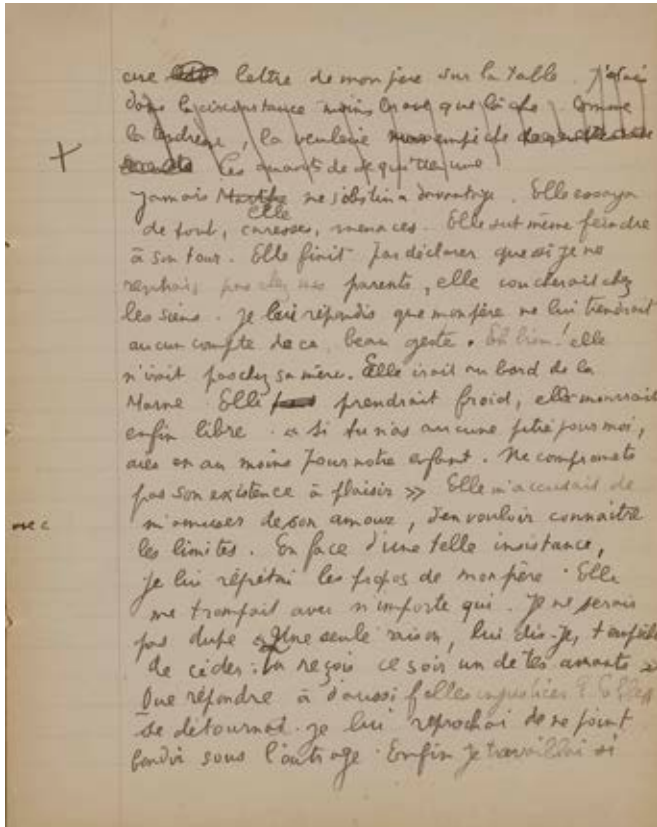 une lettre de mon père sur la table. J'étais
dans la circonstance moins brave que lâche. Comme
la tendresse, la veulerie empêche
les amants de se quitter une
Jamais Marthe ne s'obstina davantage. Elle essaya
elle
de tout, caresses, menaces. Elle sut même feindre
à son tour. Elle finit par déclarer que si je ne
rentrais pas chez mes parents, elle coucherait chez
les siens. Je lui répondis que mon père ne lui tiendrait
aucun compte de ce beau geste. Eh bien! elle
n'irait pas chez sa mère. Elle irait au bord de la
Marne Elle prendrait froid, elle mourrait
enfin libre. « Si tu n'as aucune pitié pour moi,
aies en au moins pour notre enfant. Ne compromets
pas son existence à plaisir » Elle m'accusait de
m'amuser de son amour, d'en vouloir connaître
les limites. En face d'une telle insistance,
je lui répétai les propos de mon père. Elle
me trompait avec n'importe qui. Je ne serais
pas dupe « Une seule raison, lui dis-je, t'empêche
de céder : tu reçois ce soir un de tes amants »
Que répondre à d'aussi folles injustices ? Elle
se détourna. je lui reprochai de ne point
bondir sous l'outrage. Enfin je travaillai si